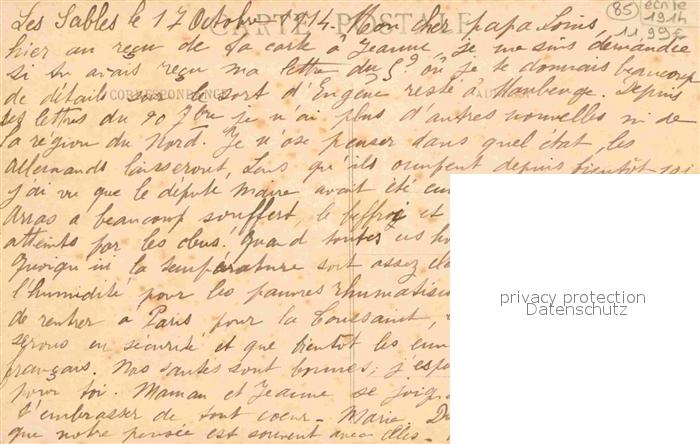 Les Sables le 17 Octobre 1914. Mon cher papa Louis,
85 écrite 1914
11,99€
CARTE POSTALE
hier au reçu de ta carte à Jeanne, je me suis demandée
si tu avais reçu ma lettre du 5? où je te donnais beaucoup
de détails sur le sort d'Eugène resté à Maubeuge. Depuis
CORRESPONDANCE
ses lettres du 7bre je n'ai plus d'autres nouvelles ni de
la région du Nord. Je n'ose penser dans quel état, les
allemands laisseront, Lens qu'ils occupent depuis bientôt
j'ai vu que le député Maire avait été
Arras a beaucoup souffert, le beffroi et
atteints par les obus! Quand toutes ces
Quoiqu'ici la température soit assez
l'humidité pour les pauvres rhumatisis
de rentrer à Paris pour la Toussaint,
serons en sécurité et que bientôt les
français. Nos santés sont bonnes; j'esp
pour toi. Maman et Jeanne se joig
t'embrasser de tout coeur - Marie
que notre pensée est souvent avec elles -
privacy protection
Datenschutz